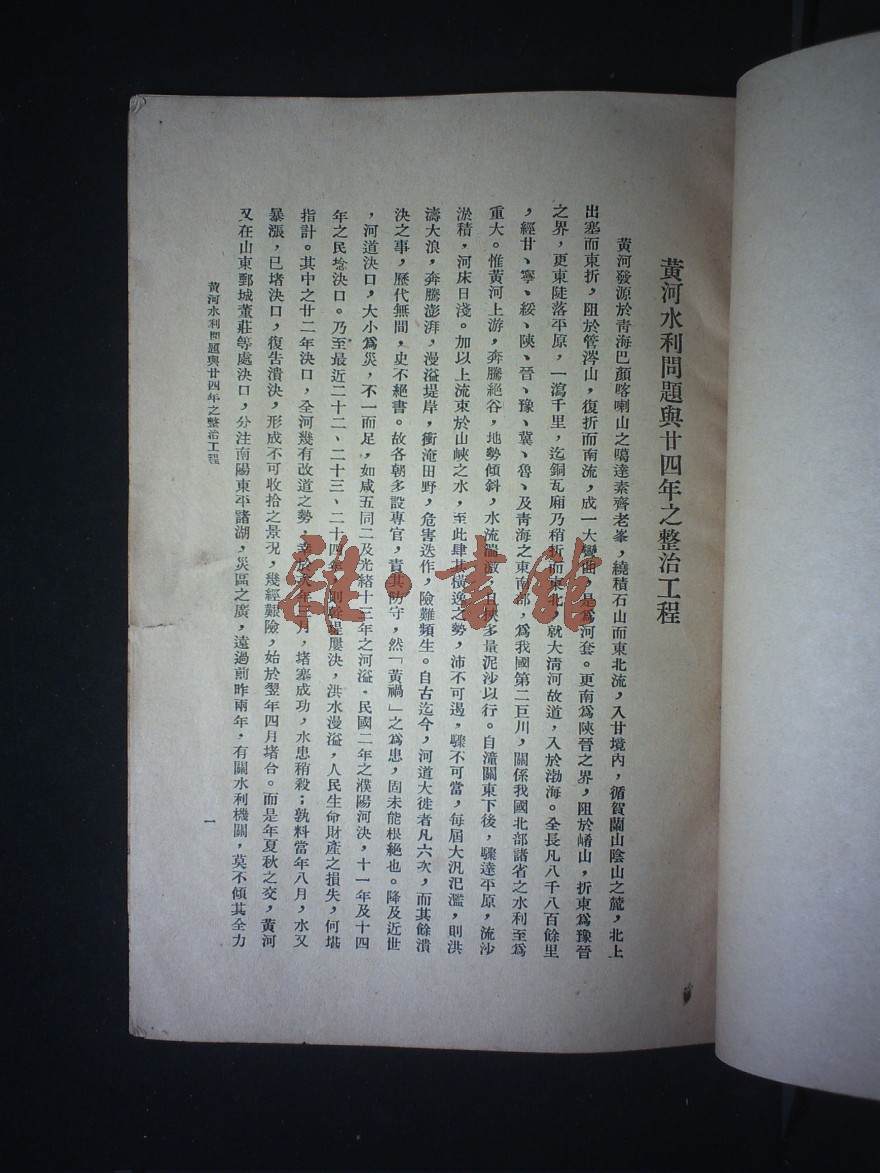 黃河水利問題與廿四年之整治工程
黃河發源於靑海巴顏喀喇山之噶達素齊老峯，繞積石山而東北流，入甘境內，循賀蘭山陰山之麓，北上
出塞而東折，阻於管涔山，復折而南流，成一大彎曲，是爲河套。更南爲陝晉之界，阻於崤山，折東爲豫晉
之界，更東陡落平原，一瀉千里，迄銅瓦廂乃稍折而東北，就大淸河故道，入於渤海。全長凡八千八百餘里
，經甘、寧、綏、陝、晉、豫、冀、魯、及靑海之東南部，爲我國第二巨川，關係我國北部諸省之水利至爲
重大。惟黃河上游，奔騰絕谷，地勢傾斜，水流湍激，且挾多量泥沙以行。自潼關東下後，驟達平原，流沙
淤積，河床日淺。加以上流束於山峽之水，至此肆其橫逸之勢，沛不可遏，驟不可當，每屆大汎汜濫，則洪
濤大浪，奔騰澎湃，漫溢堤岸，衝淹田野，危害迭作，險難頻生。自古迄今，河道大徙者凡六次，而其餘潰
決之事，歷代無間，史不絕書。故各朝多設專官，責其防守，然「黃禍」之爲患，固未能根絕也。降及近世
，河道決口，大小爲災，不一而足，如咸五同二及光緒十三年之河溢．民國二年之濮陽河決，十一年及十四
年之民埝決口。乃至最近二十二、二十三、二十四年，則幹堤屢決，洪水漫溢，人民生命財產之損失，何堪
指計。其中之廿二年決口，全河幾有改道之勢，幸於次年三月，堵塞成功，水患稍殺；孰料當年八月，水又
暴漲，已堵決口，復告潰決，形成不可收拾之景況，幾經艱險，始於翌年四月堵合。而是年夏秋之交，黃河
又在山東鄄城董莊等處決口，分注南陽東平諸湖，災區之廣，遠過前昨兩年，有關水利機關，莫不傾其全力
黃河水利問題與廿四年之整治工程
一
雜·書館